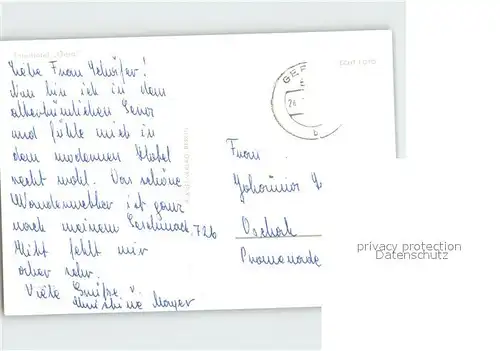 Liebe Frau Schäfer!
Nun bin ich in dem
altertümlichen Gera
und fühle mich in
dem modernen Hotel
recht wohl. Das schöne
Wanderwetter ist ganz
nach meinem Geschmack.
Mitt fehlt mir
aber sehr.
Viele Grüße
Christine Mayer
GER
24
b
Frau
726
Oschatz
Promenade
privacy protection
Datenschutz